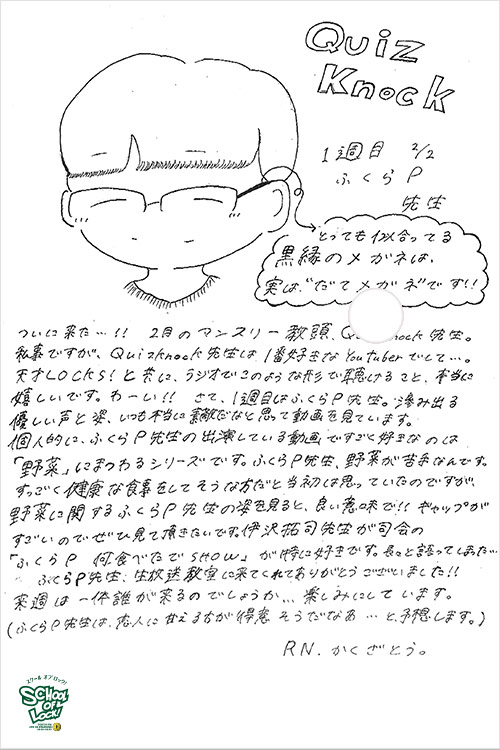 Quiz
Knock
1週目 2/2
ふくらP
先生
とっても似合ってる
黒縁のメガネは、
実は、"だてメガネ"です!!
ついに来た…!! 2月のマンスリー教頭、QuizKnock先生。
私事ですが、QuizKnock先生は1番好きなYoutuberでして…。
天才LOCKS!と共に、ラジオでこのような形で聴けること、本当に
嬉しいです。わーい!! さて、1週目はふくらP先生。滲み出る
優しい声と姿、いつも本当に素敵だなと思って動画を見ています。
個人的に、ふくらP先生の出演している動画ですごく好きなのは
「野菜」にまつわるシリーズです。ふくらP先生、野菜が苦手なんです。
すっごく健康な食事をしてそうな方だと当初は思っていたのですが、
野菜に関するふくらP先生の姿を見ると、良い意味で!!ギャップが
すごいのでぜひ見て頂きたいです。伊沢拓司先生が司会の
「ふくらP 何食べたでSHOW」が特に好きです。長々と語ってしまった…
ふくらP先生、生放送教室に来てくれてありがとうございました!!
来週は一体誰が来るのでしょうか…楽しみにしています。
(ふくらP先生は、恋人に甘える方が得意そうだなあ…と、予想します。)
RN. かくざとう。
スクール オブ ロック!
SCHOOL
OF
LOCK!